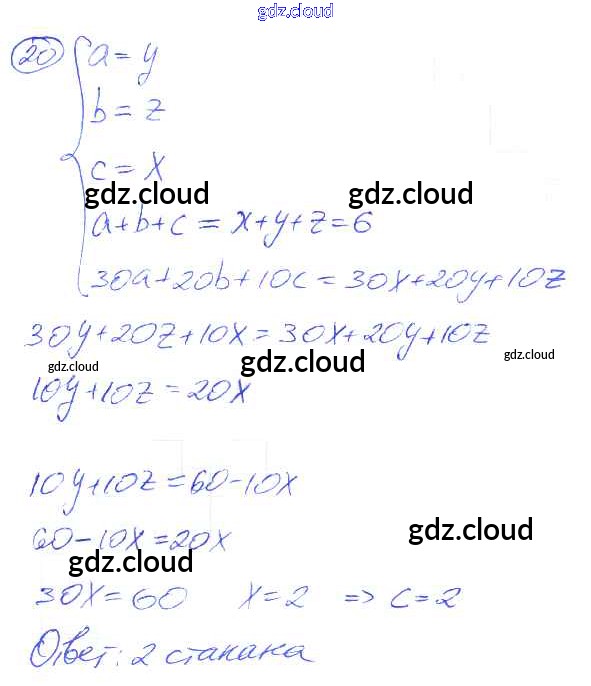 gdz.cloud
20 a = y
b = z
c = x
gdz.cloud gdz.cloud
a+b+c = x+y+z=6
30a+20b+10c=30x+20y+10z
30y+20z+10x=30x+20y+10z
gdz.cloud gdz.cloud gdz.cloud
10y+10z=20x
10y+10z=60-10x
60-10x=20x
gdz.cloud
gdz.cloud
30x=60 x=2 => c=2
Ответ: 2 стакана
gdz.cloud